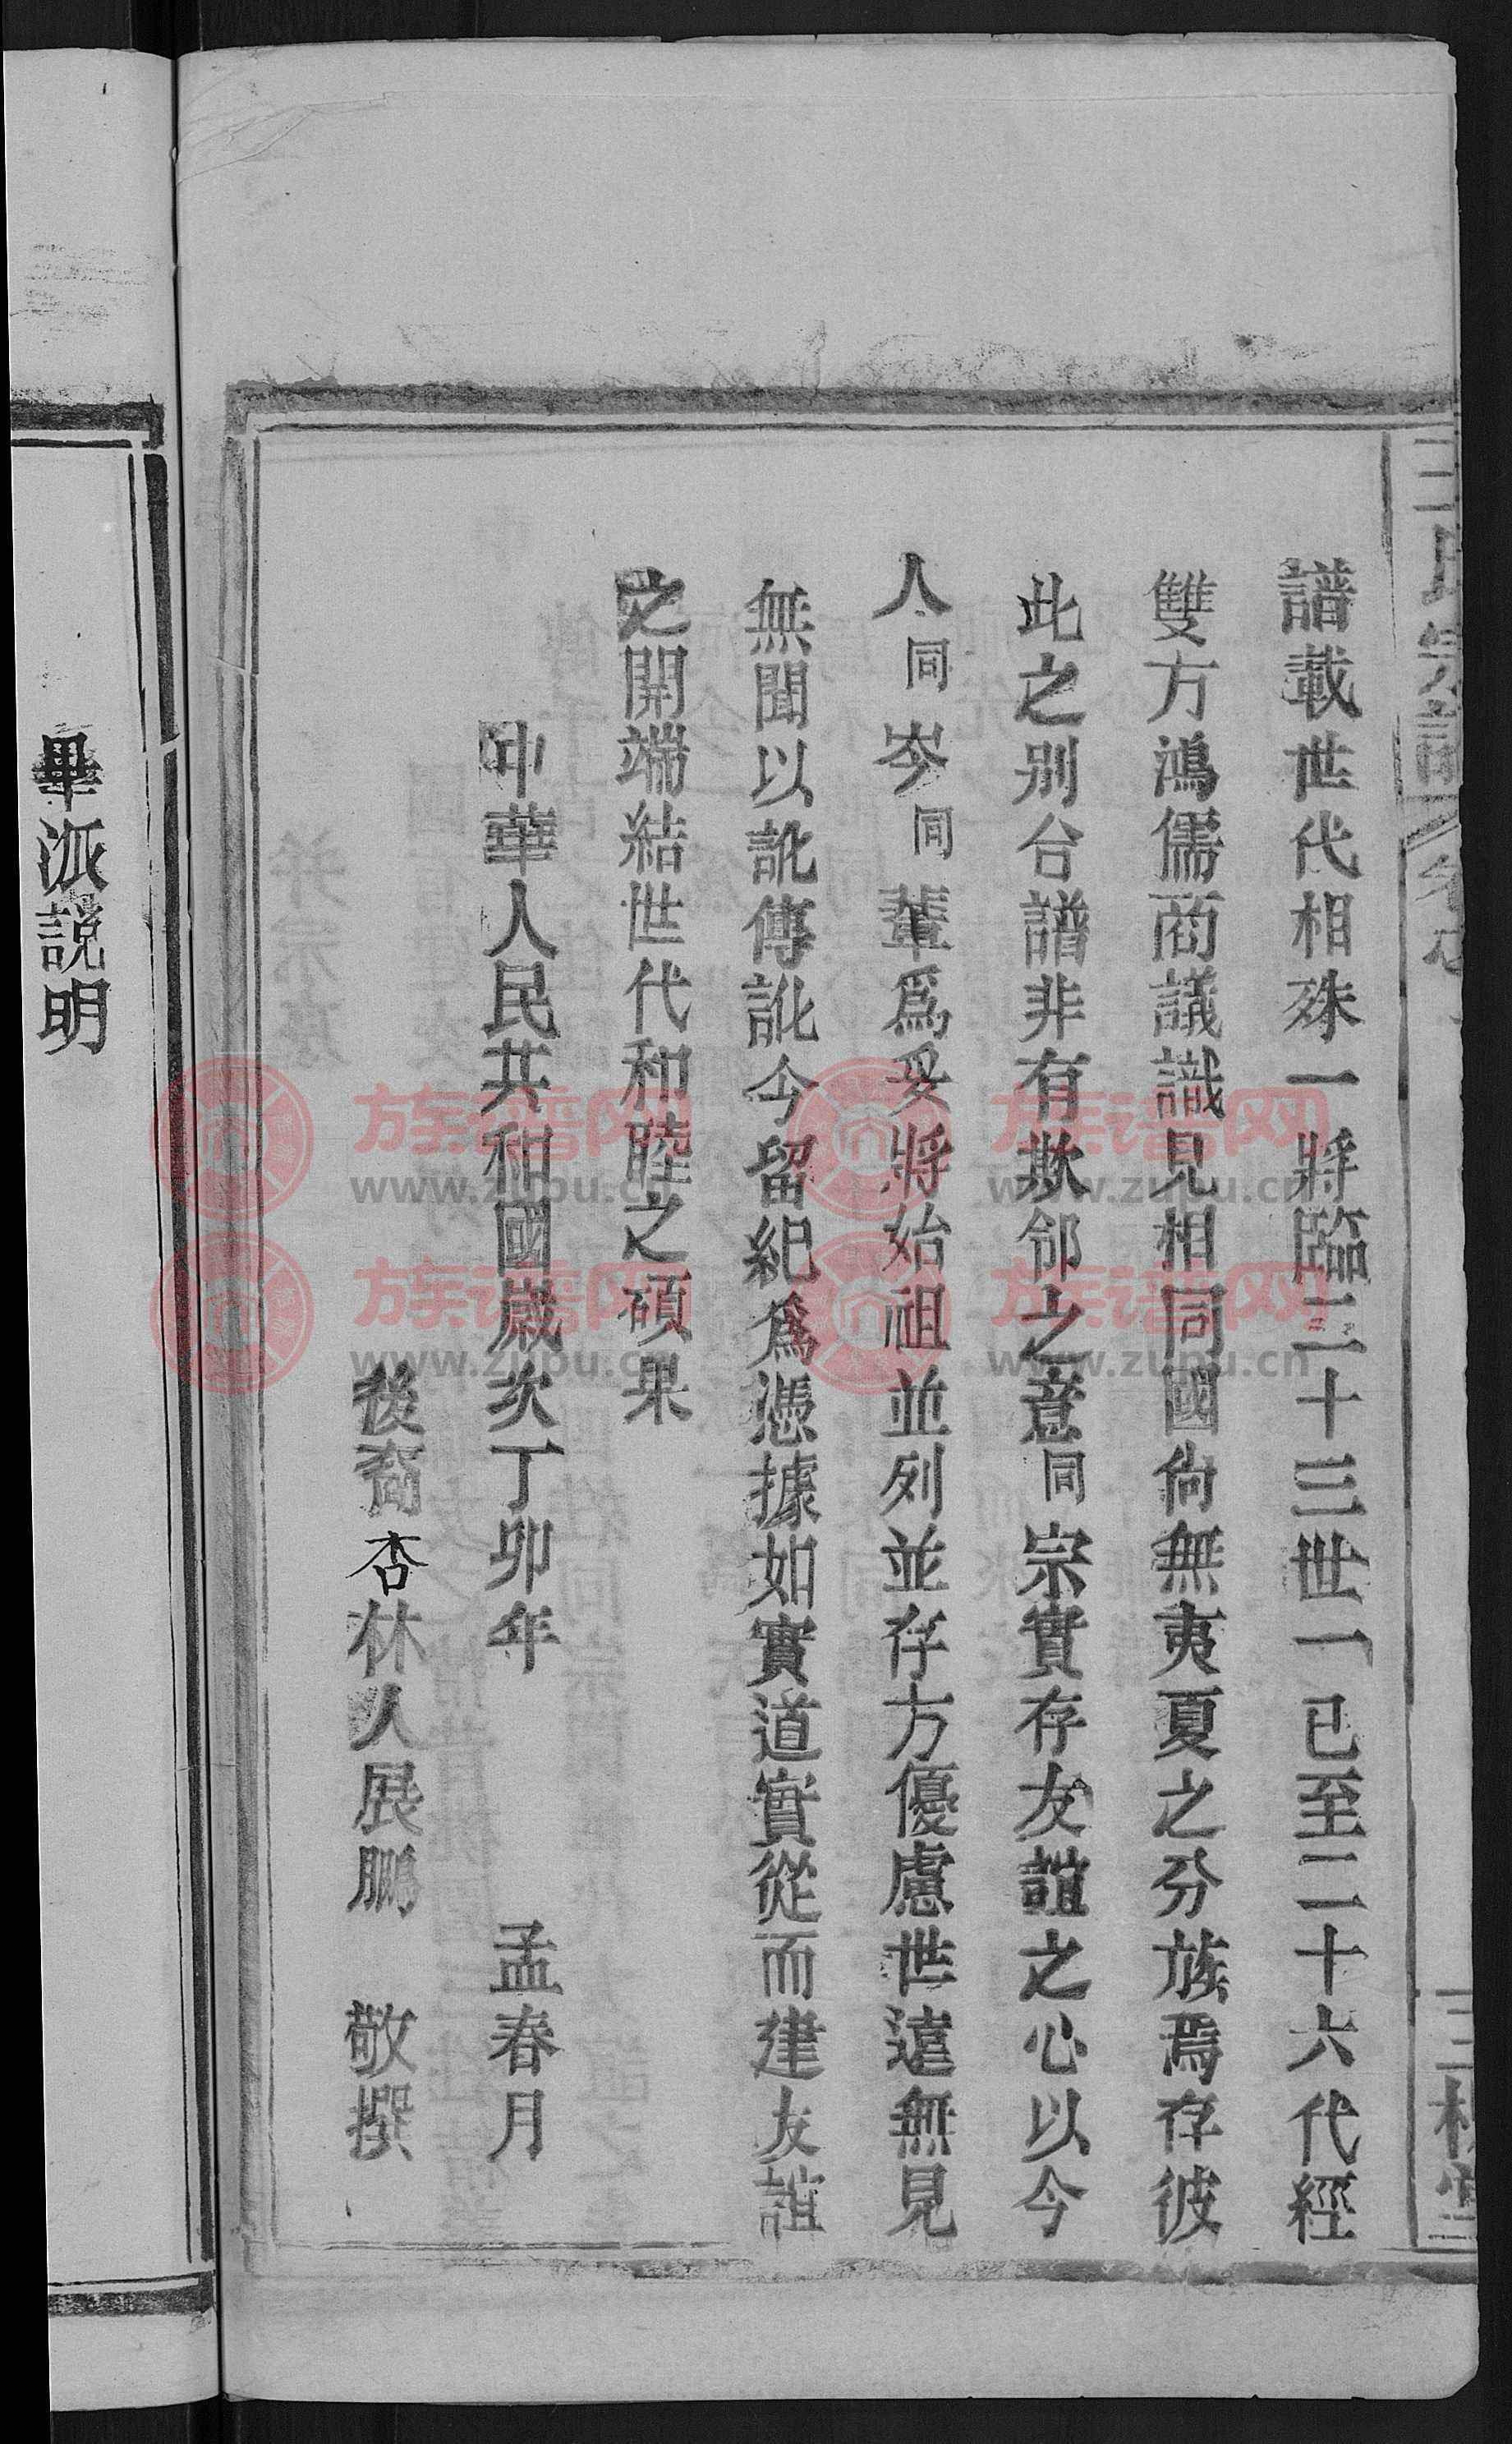 王氏宗譜 卷
三槐堂
譜載世代相殊一將臨三十三世一已至二十六代經
雙方鴻儒商議識見相同國尙無夷夏之分族焉存彼
此之别台譜非有欺邻之意同宗實存友誼之心以今
人同岑同輩爲妥將始祖並列並存方優慮世遠無見
無聞以訛傳訛今留紀爲憑據如實道實從而建友誼
之開端結世代和睦之碩果
中華人民共和國歲次丁卯年 孟春月
後裔杏林人展鵬 敬撰
畢派説明
族谱网
www.zupu.cn
族谱网
www.zupu.cn
族谱网
www.zupu.cn
族谱网
www.zupu.cn